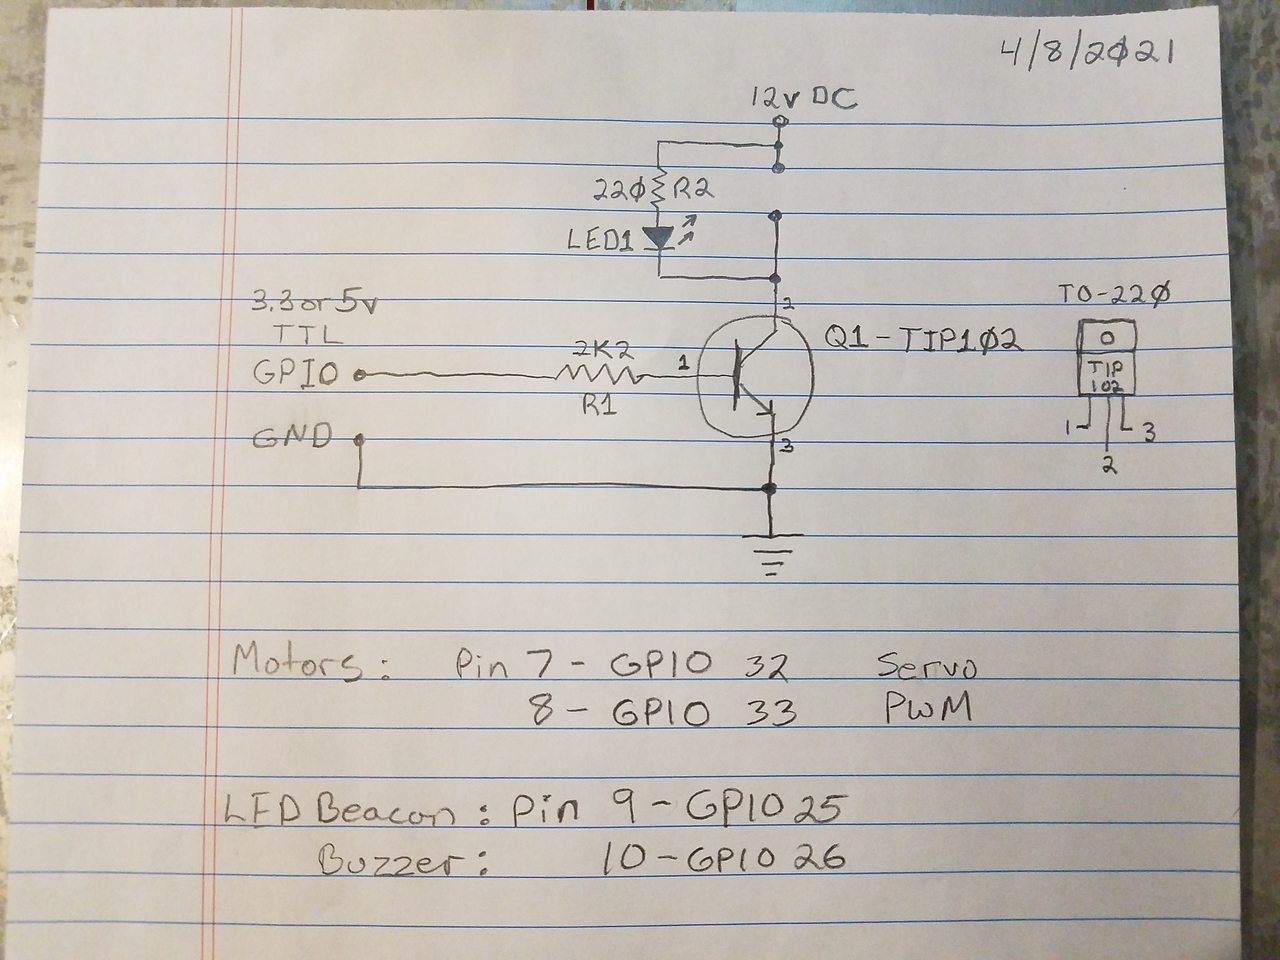 4/8/2021
12v DC
220 R2
LED1
2
3.3 or 5v
TTL
GPIO
2K2
R1
1
Q1-TIP102
GND
3
TO-220
TIP
102
1
3
2
Motors: Pin 7 - GPIO 32 Servo
8 - GPIO 33 PWM
LED Beacon: Pin 9 - GPIO 25
Buzzer: 10 - GPIO 26